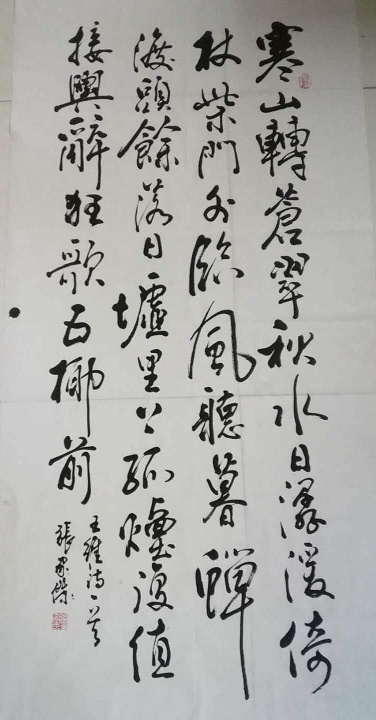 寒山轉蒼翠秋水日潺湲倚
杖柴門外臨風聽暮蟬
渡頭餘落日墟里上孤煙復值
接輿辭狂歌五柳前
王維詩一首
張家傑